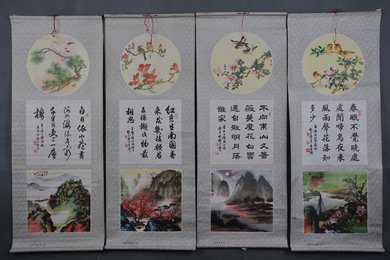 白日依山盡黃
河入海流欲窮
千里目更上一層
樓
紅豆生南國春
來發幾枝願君
多採擷此物最
相思
不向東山久薔
薇幾度花白雲
還自散明月落
誰家
春眠不覺曉處
處聞啼鳥夜來
風雨聲花落知
多少